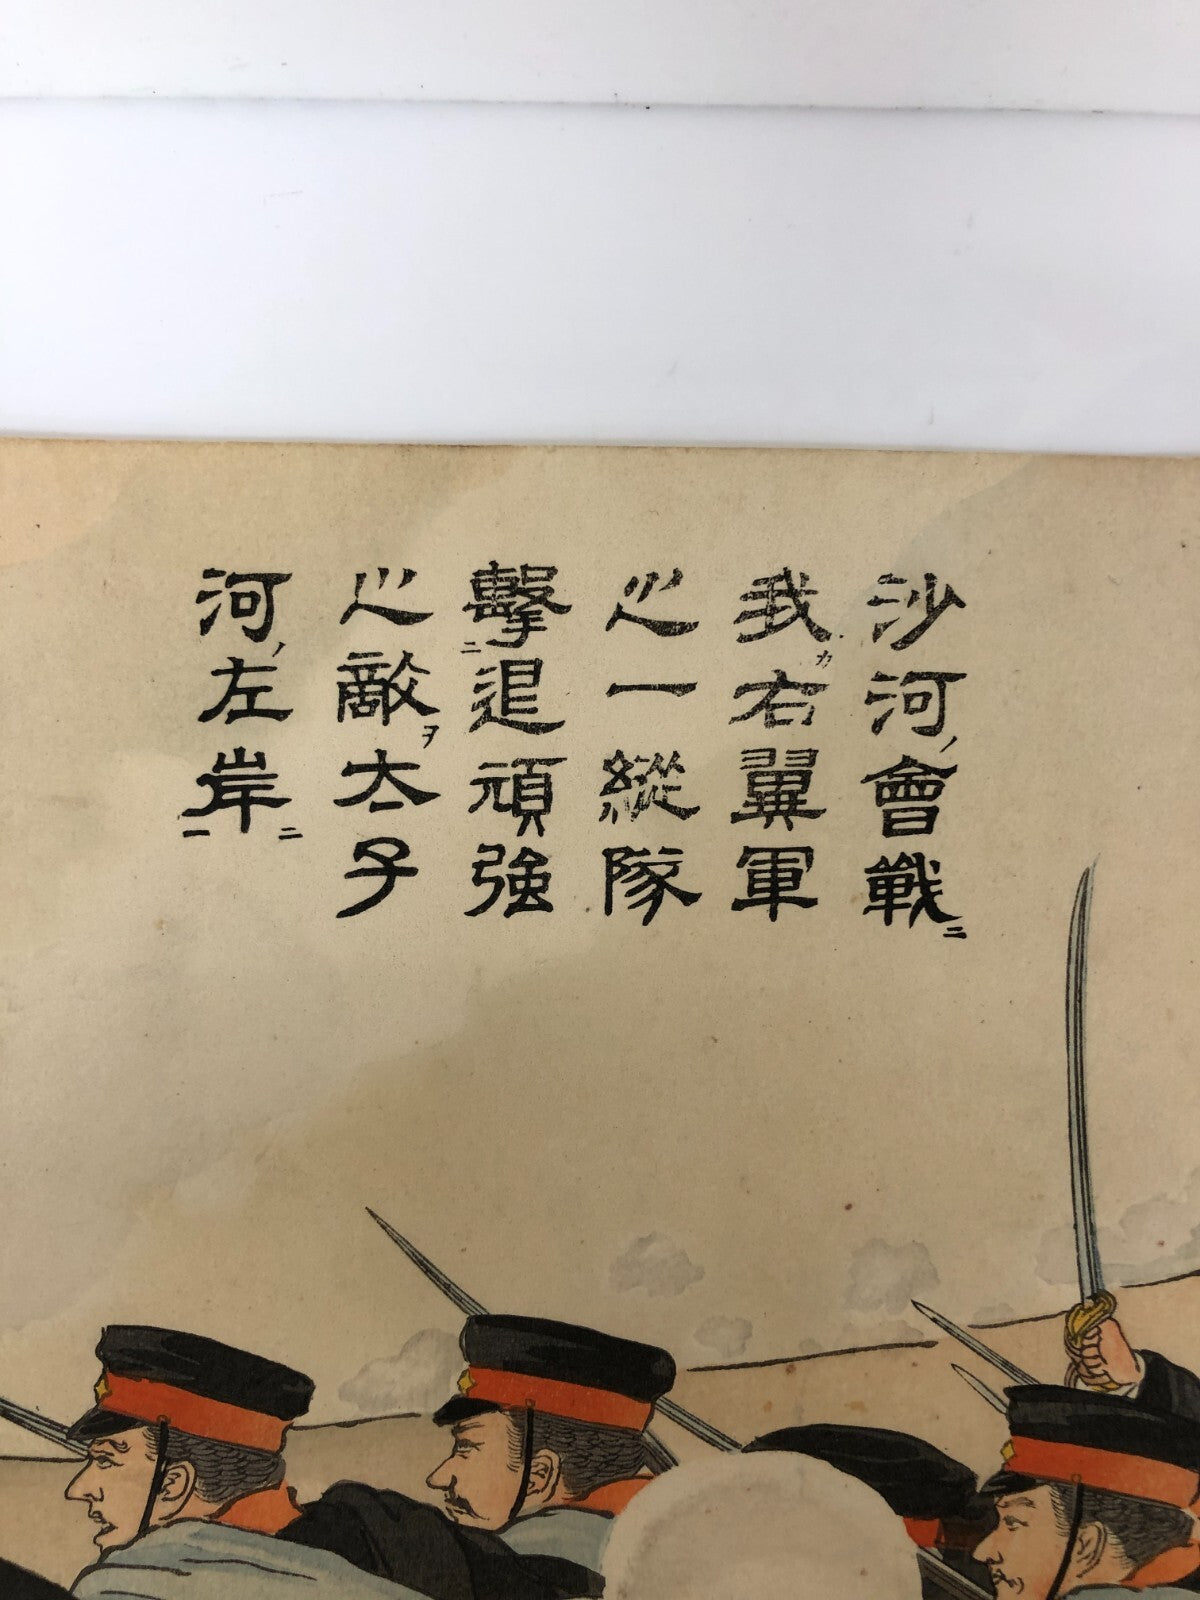 沙河ノ會戰ニ
我カ右翼軍
之一縱隊
擊二退頑強
之敵ヲ太子
河ノ左岸一ニ